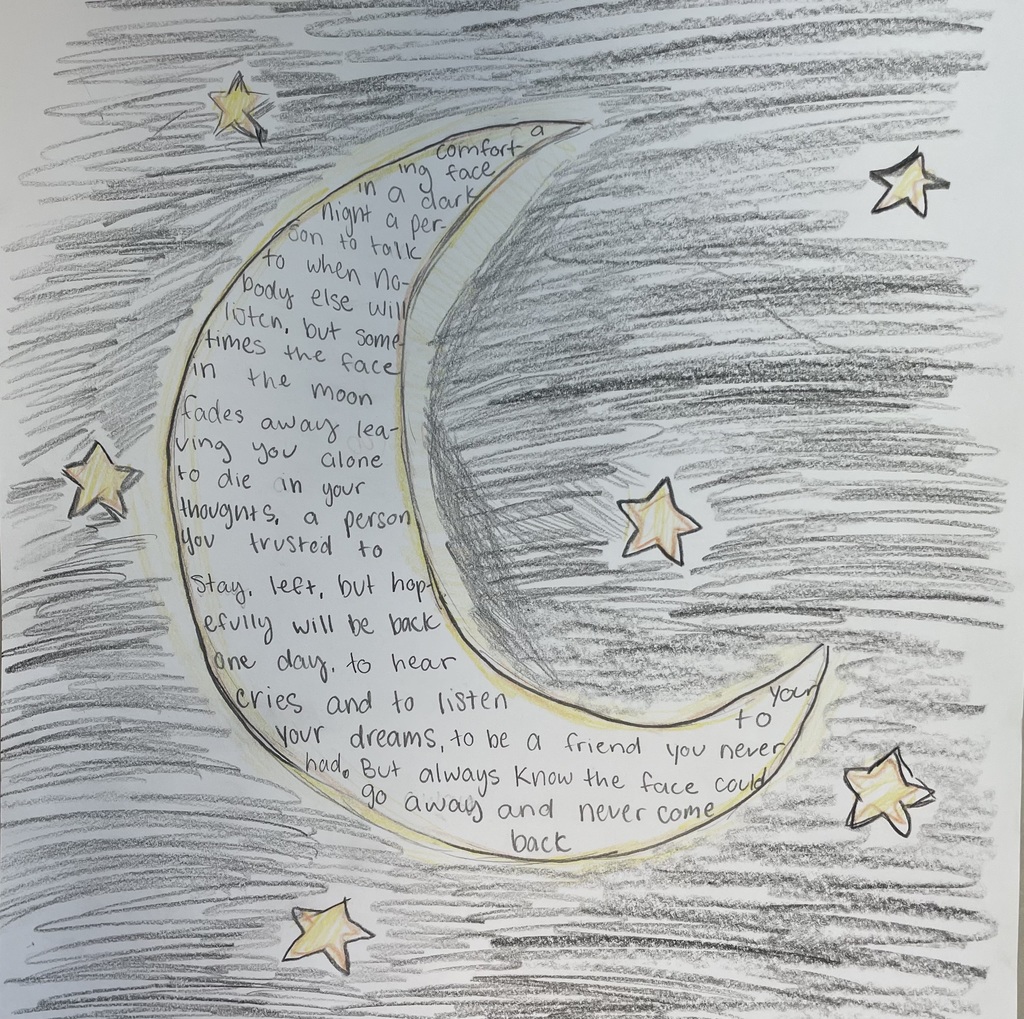 a
comfort
ing face
in a dark
night a per-
son to talk
to when no-
body else will
listen, but some-
times the face
in the moon
fades away lea-
ving you alone
to die in your
thoughts, a person
you trusted to
stay, left, but hop-
efully will be back
one day, to hear your
cries and to listen to
your dreams, to be a friend you never
had. But always know the face could
go away and never come
back